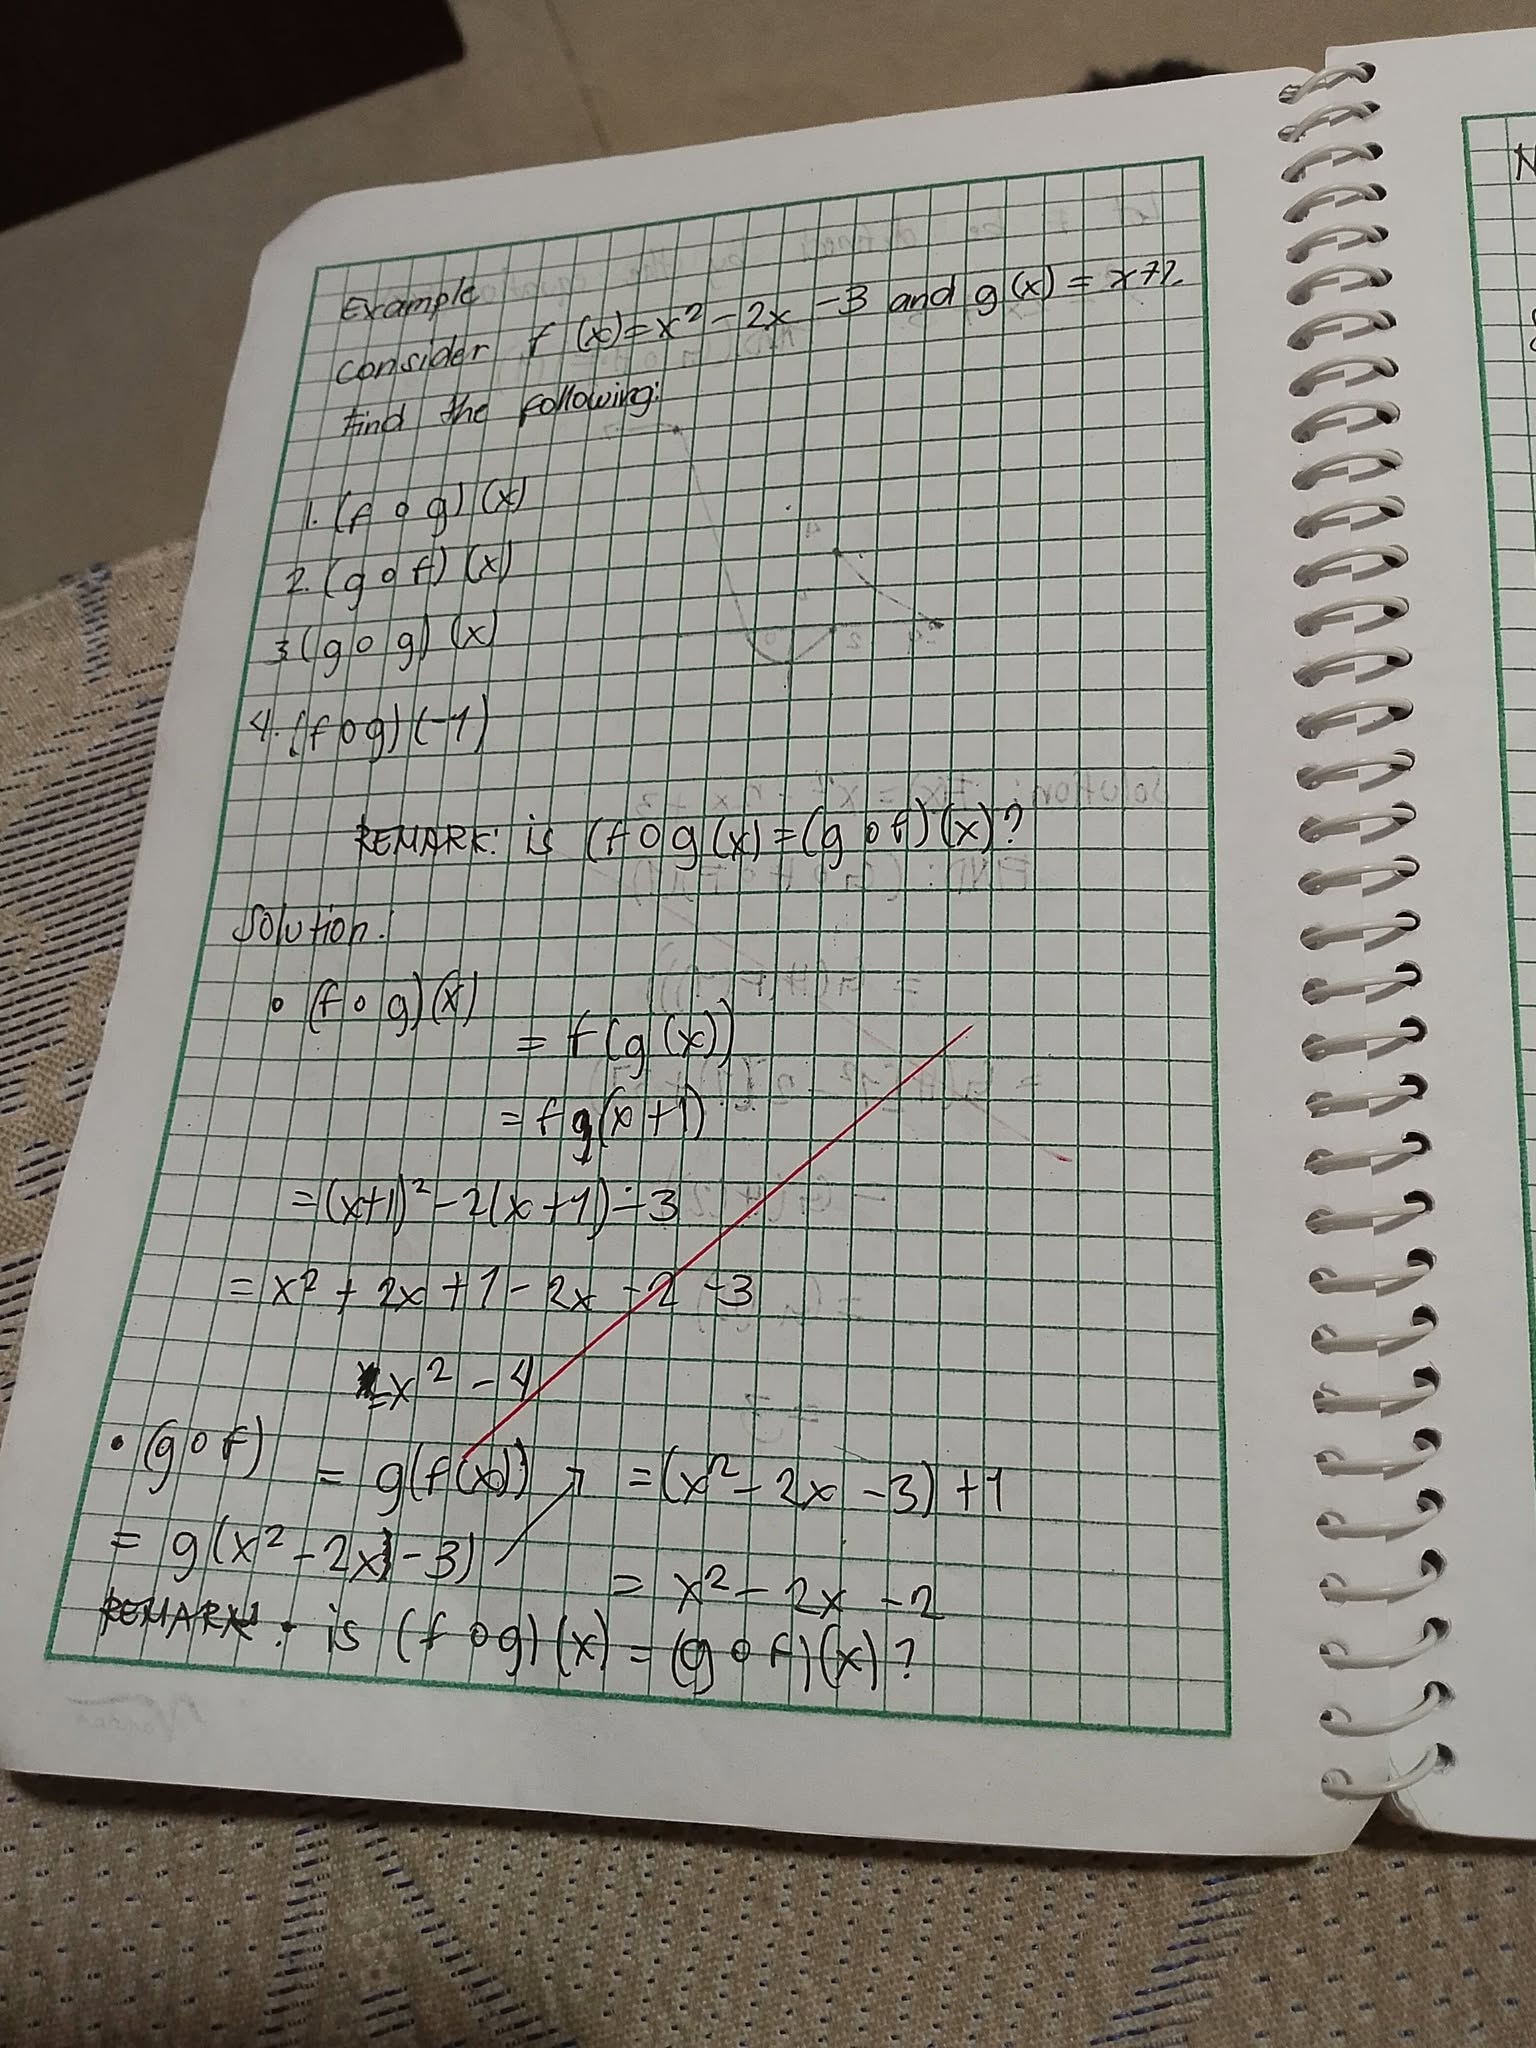 Example
consider f(x) = x² - 2x - 3 and g(x) = x+1.
find the following:
1. (f o g) (x)
2. (g o f) (x)
3 (g o g) (x)
4. (f o g) (-1)
REMARK: is (f o g (x) = (g o f) (x)?
Solution:
• (f o g) (x)
= f(g(x))
= f g(x+1)
= (x+1)² - 2(x+1) - 3
= x² + 2x + 1 - 2x - 2 - 3
= x² - 4
• (g o f) = g(f(x)) = (x² - 2x - 3) + 1
= g(x² - 2x - 3)
= x² - 2x - 2
REMARK: is (f o g) (x) = (g o f) (x)?